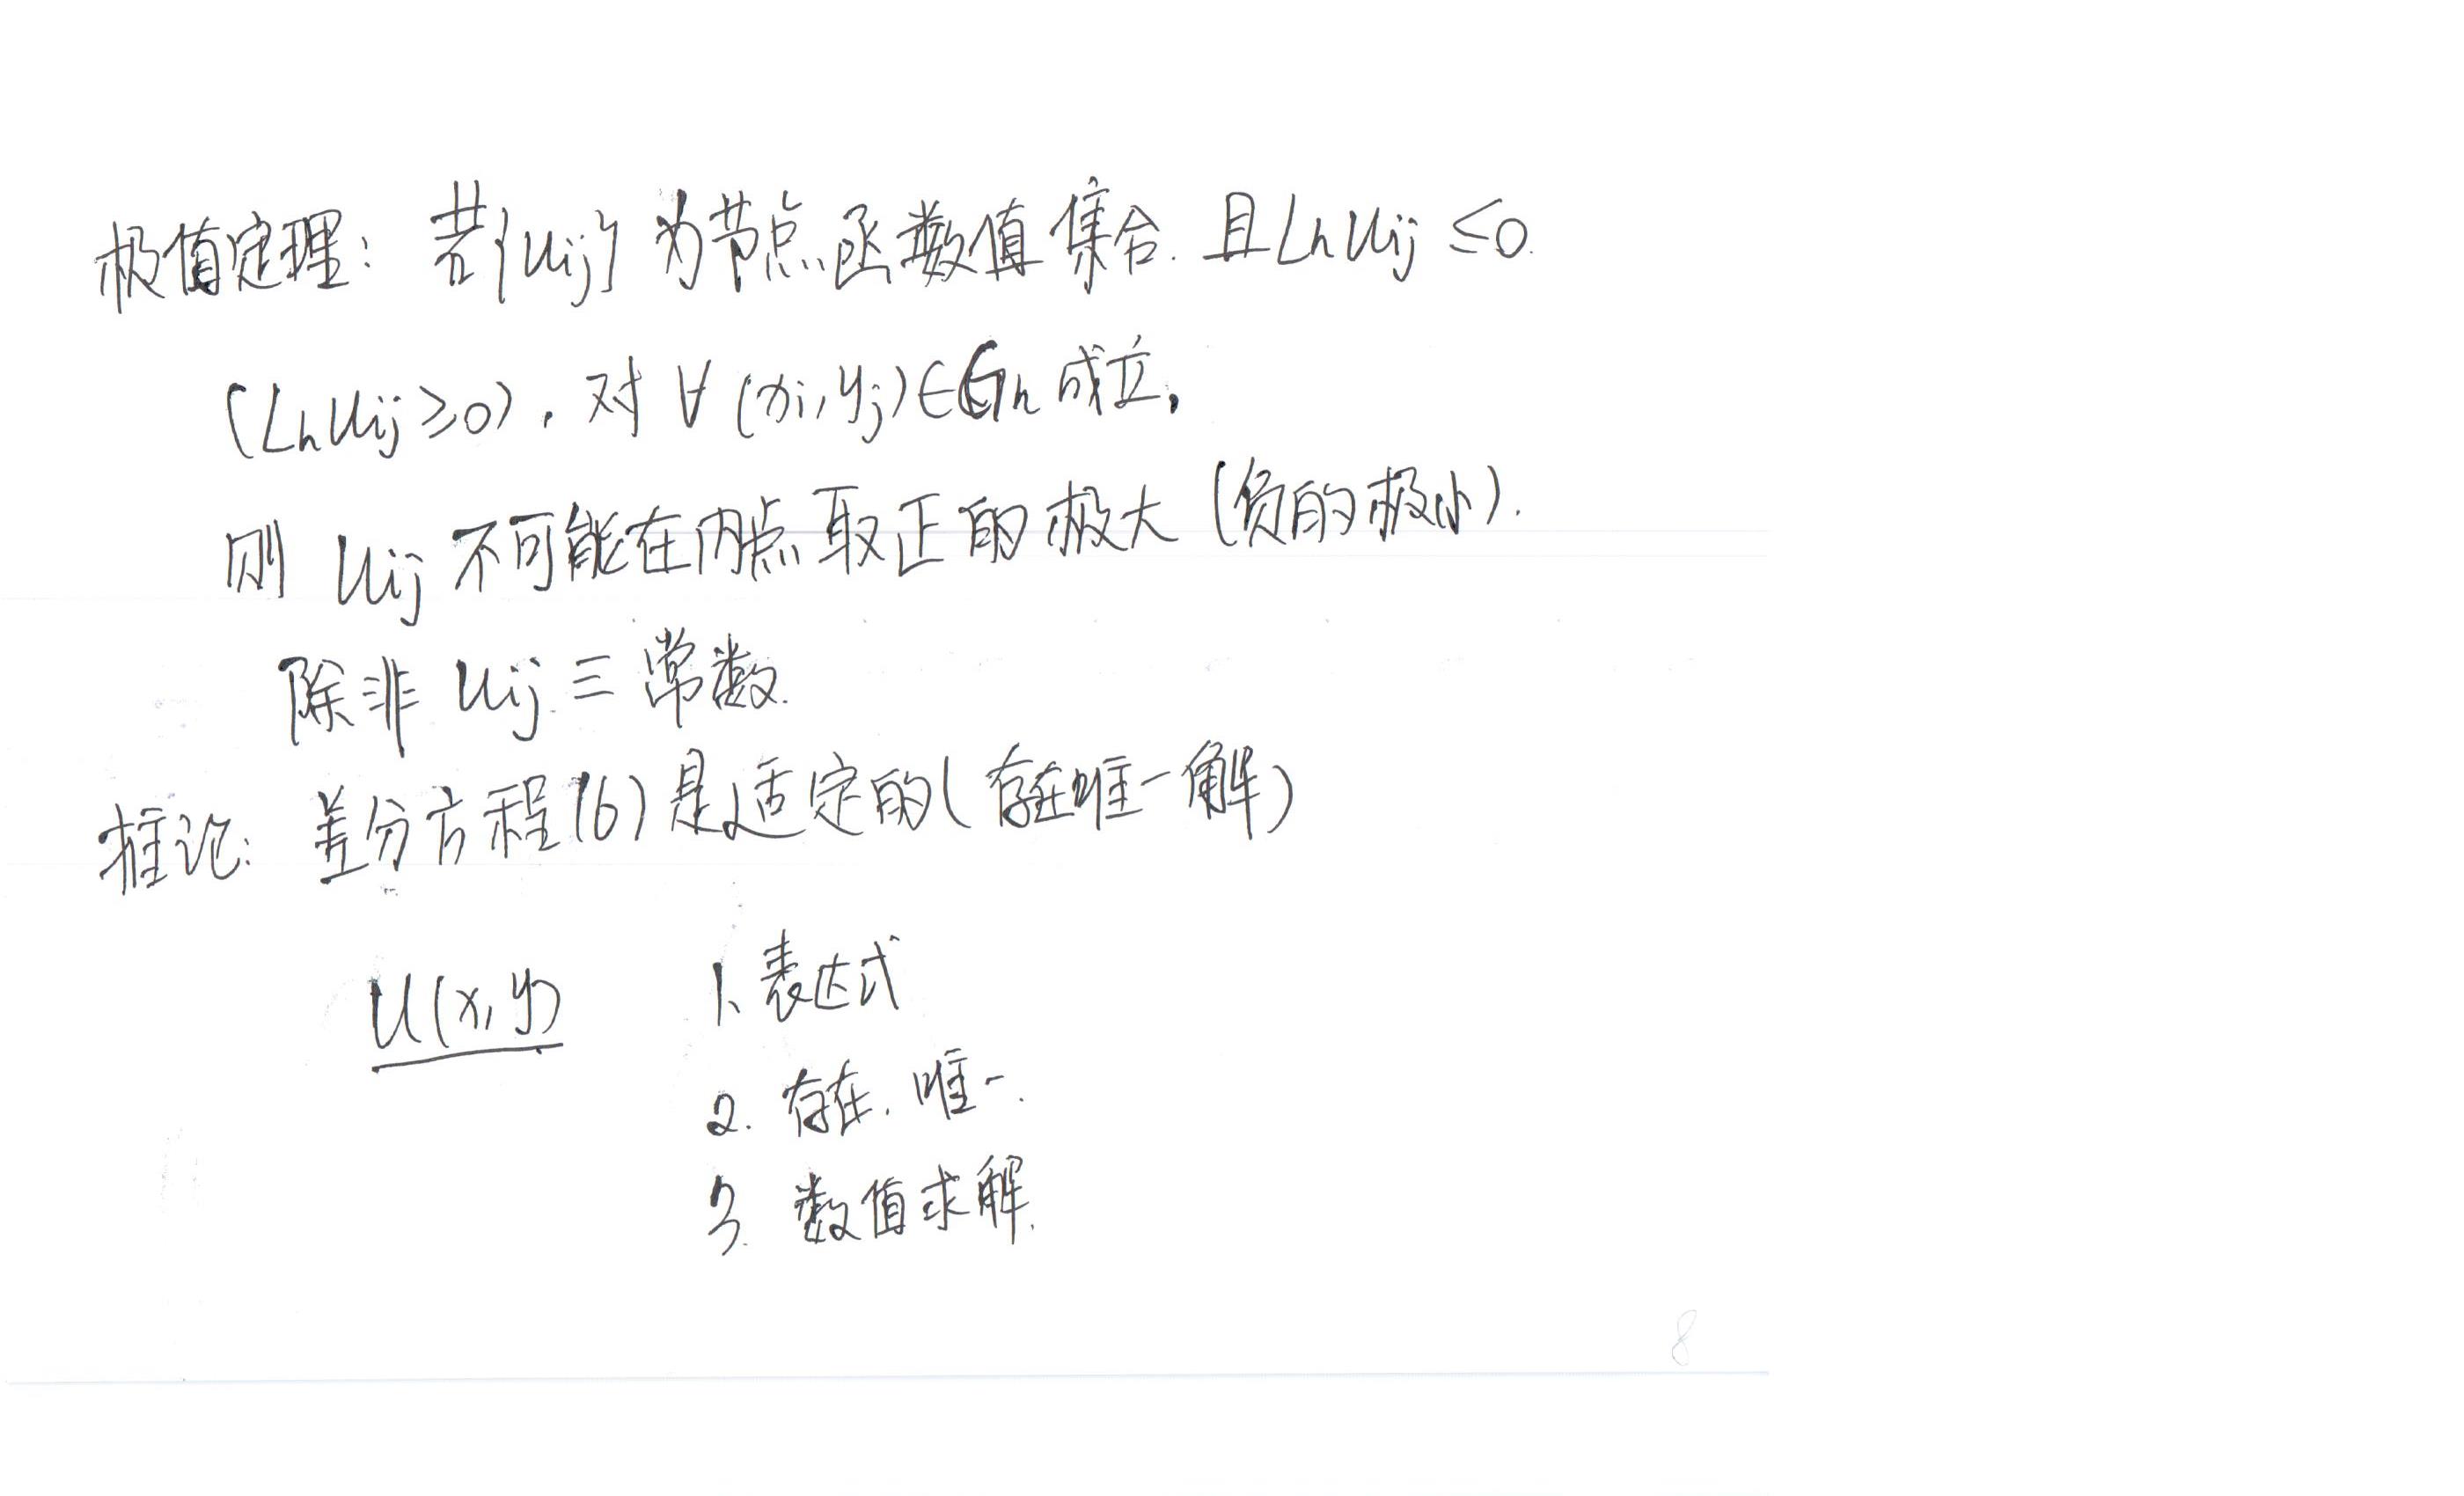 极值定理: 若{uij}为节点函数值集合. 且Lhuij ≤0.
(Lhuij ≥0). 对∀(xi,yj)∈Gh成立,
则 uij 不可能在内点取正的极大 (负的极小).
除非 uij ≡ 常数.
推论: 差分方程(6)是适定的(存在唯一解)
u(x,y) 1、表达式
2. 存在. 唯一.
3. 数值求解.
8